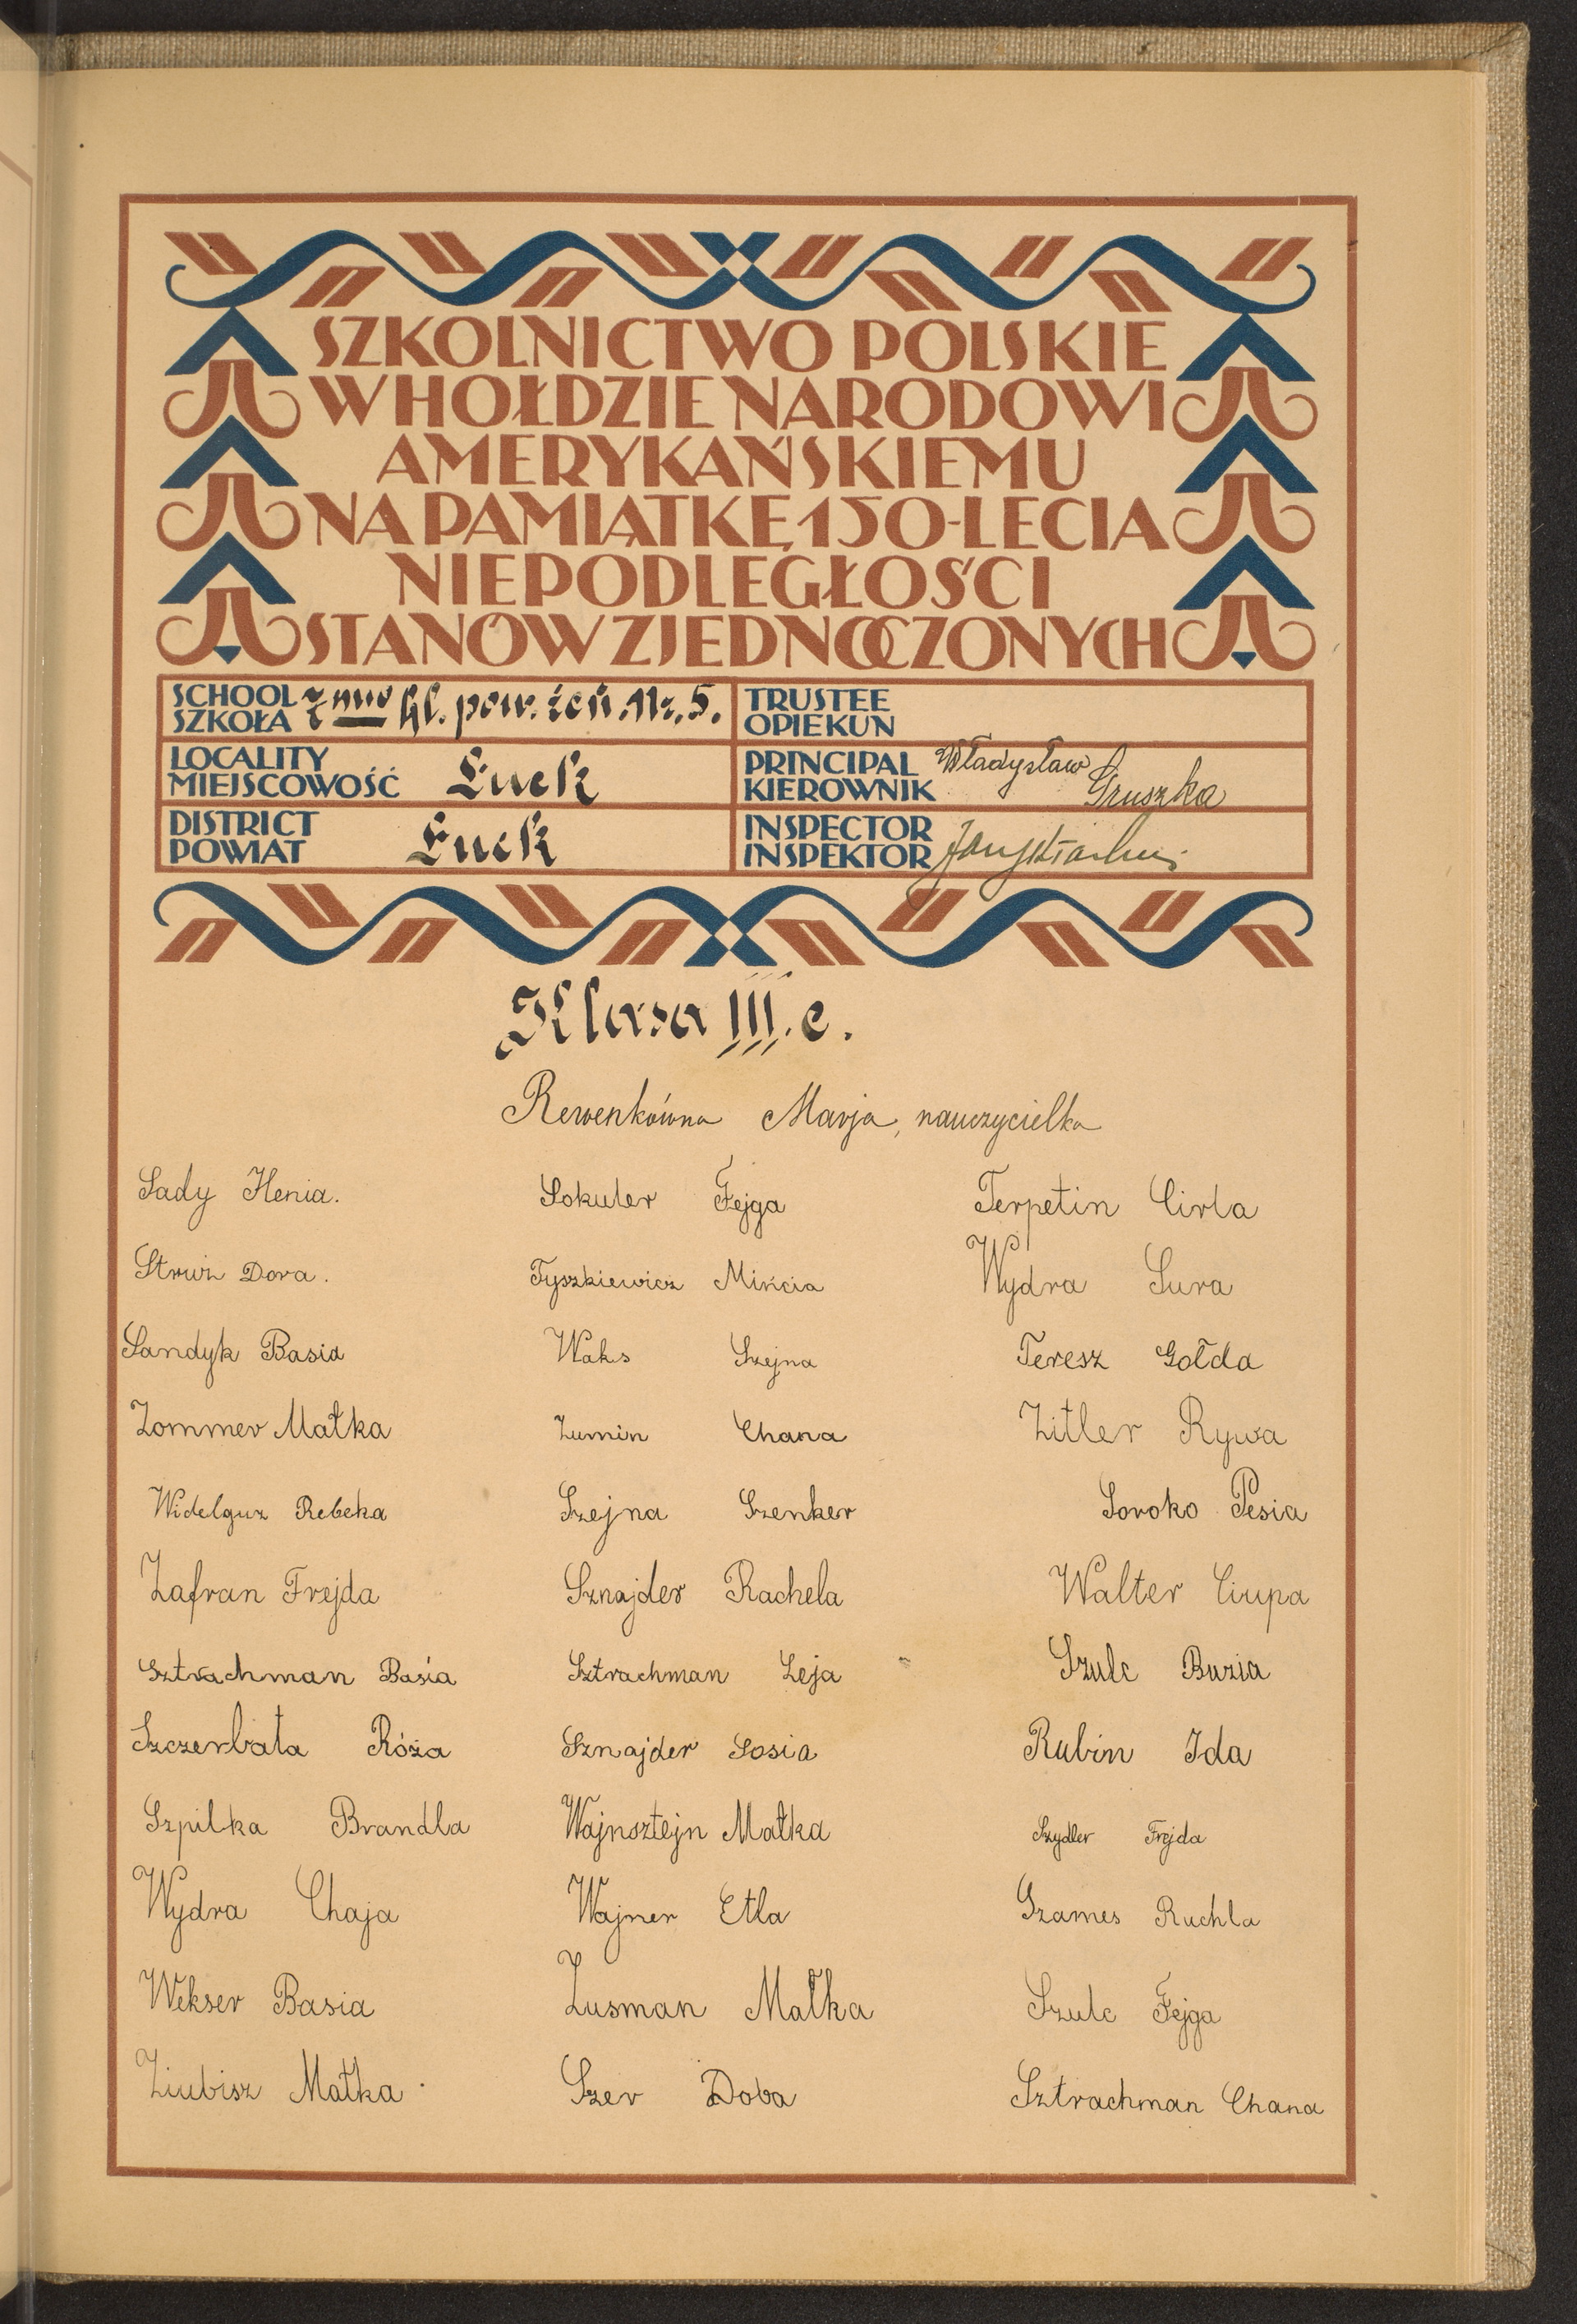 SZKOLNICTWO POLSKIE
W HOŁDZIE NARODOWI
AMERYKAŃSKIEMU
NA PAMIĄTKĘ 150-LECIA
NIEPODLEGŁOŚCI
STANÓW ZJEDNOCZONYCH
SCHOOL
SZKOŁA 7 mio kl. pow. żeń. Nr. 5.
TRUSTEE
OPIEKUN
LOCALITY
MIEJSCOWOŚĆ Łuck
PRINCIPAL
KIEROWNIK Władysław Gruszka
DISTRICT
POWIAT Łuck
INSPECTOR
INSPEKTOR
Klasa III. c.
Rewenkówna Marja, nauczycielka
Sady Henia.
Struż Dora.
Sandyk Basia
Zommer Małka
Widelguz Rebeka
Zafran Frejda
Sztrachman Basia
Szczerbata Róża
Szpilka Brandla
Wydra Chaja
Wekser Basia
Ziubisz Małka
Sokuler Fejga
Tyszkiewicz Mińcia
Waks Szejna
Zumin Chana
Szejna Szenker
Sznajder Rachela
Sztrachman Leja
Sznajder Sosia
Wajnsztejn Małka
Wajner Etla
Zusman Małka
Szer Doba
Terpetin Cirla
Wydra Sura
Teresz Gołda
Zitler Rywa
Soroko Pesia
Walter Ciupa
Szulc Buzia
Rubin Ida
Szydler Frejda
Szames Ruchla
Szulc Fejga
Sztrachman Chana